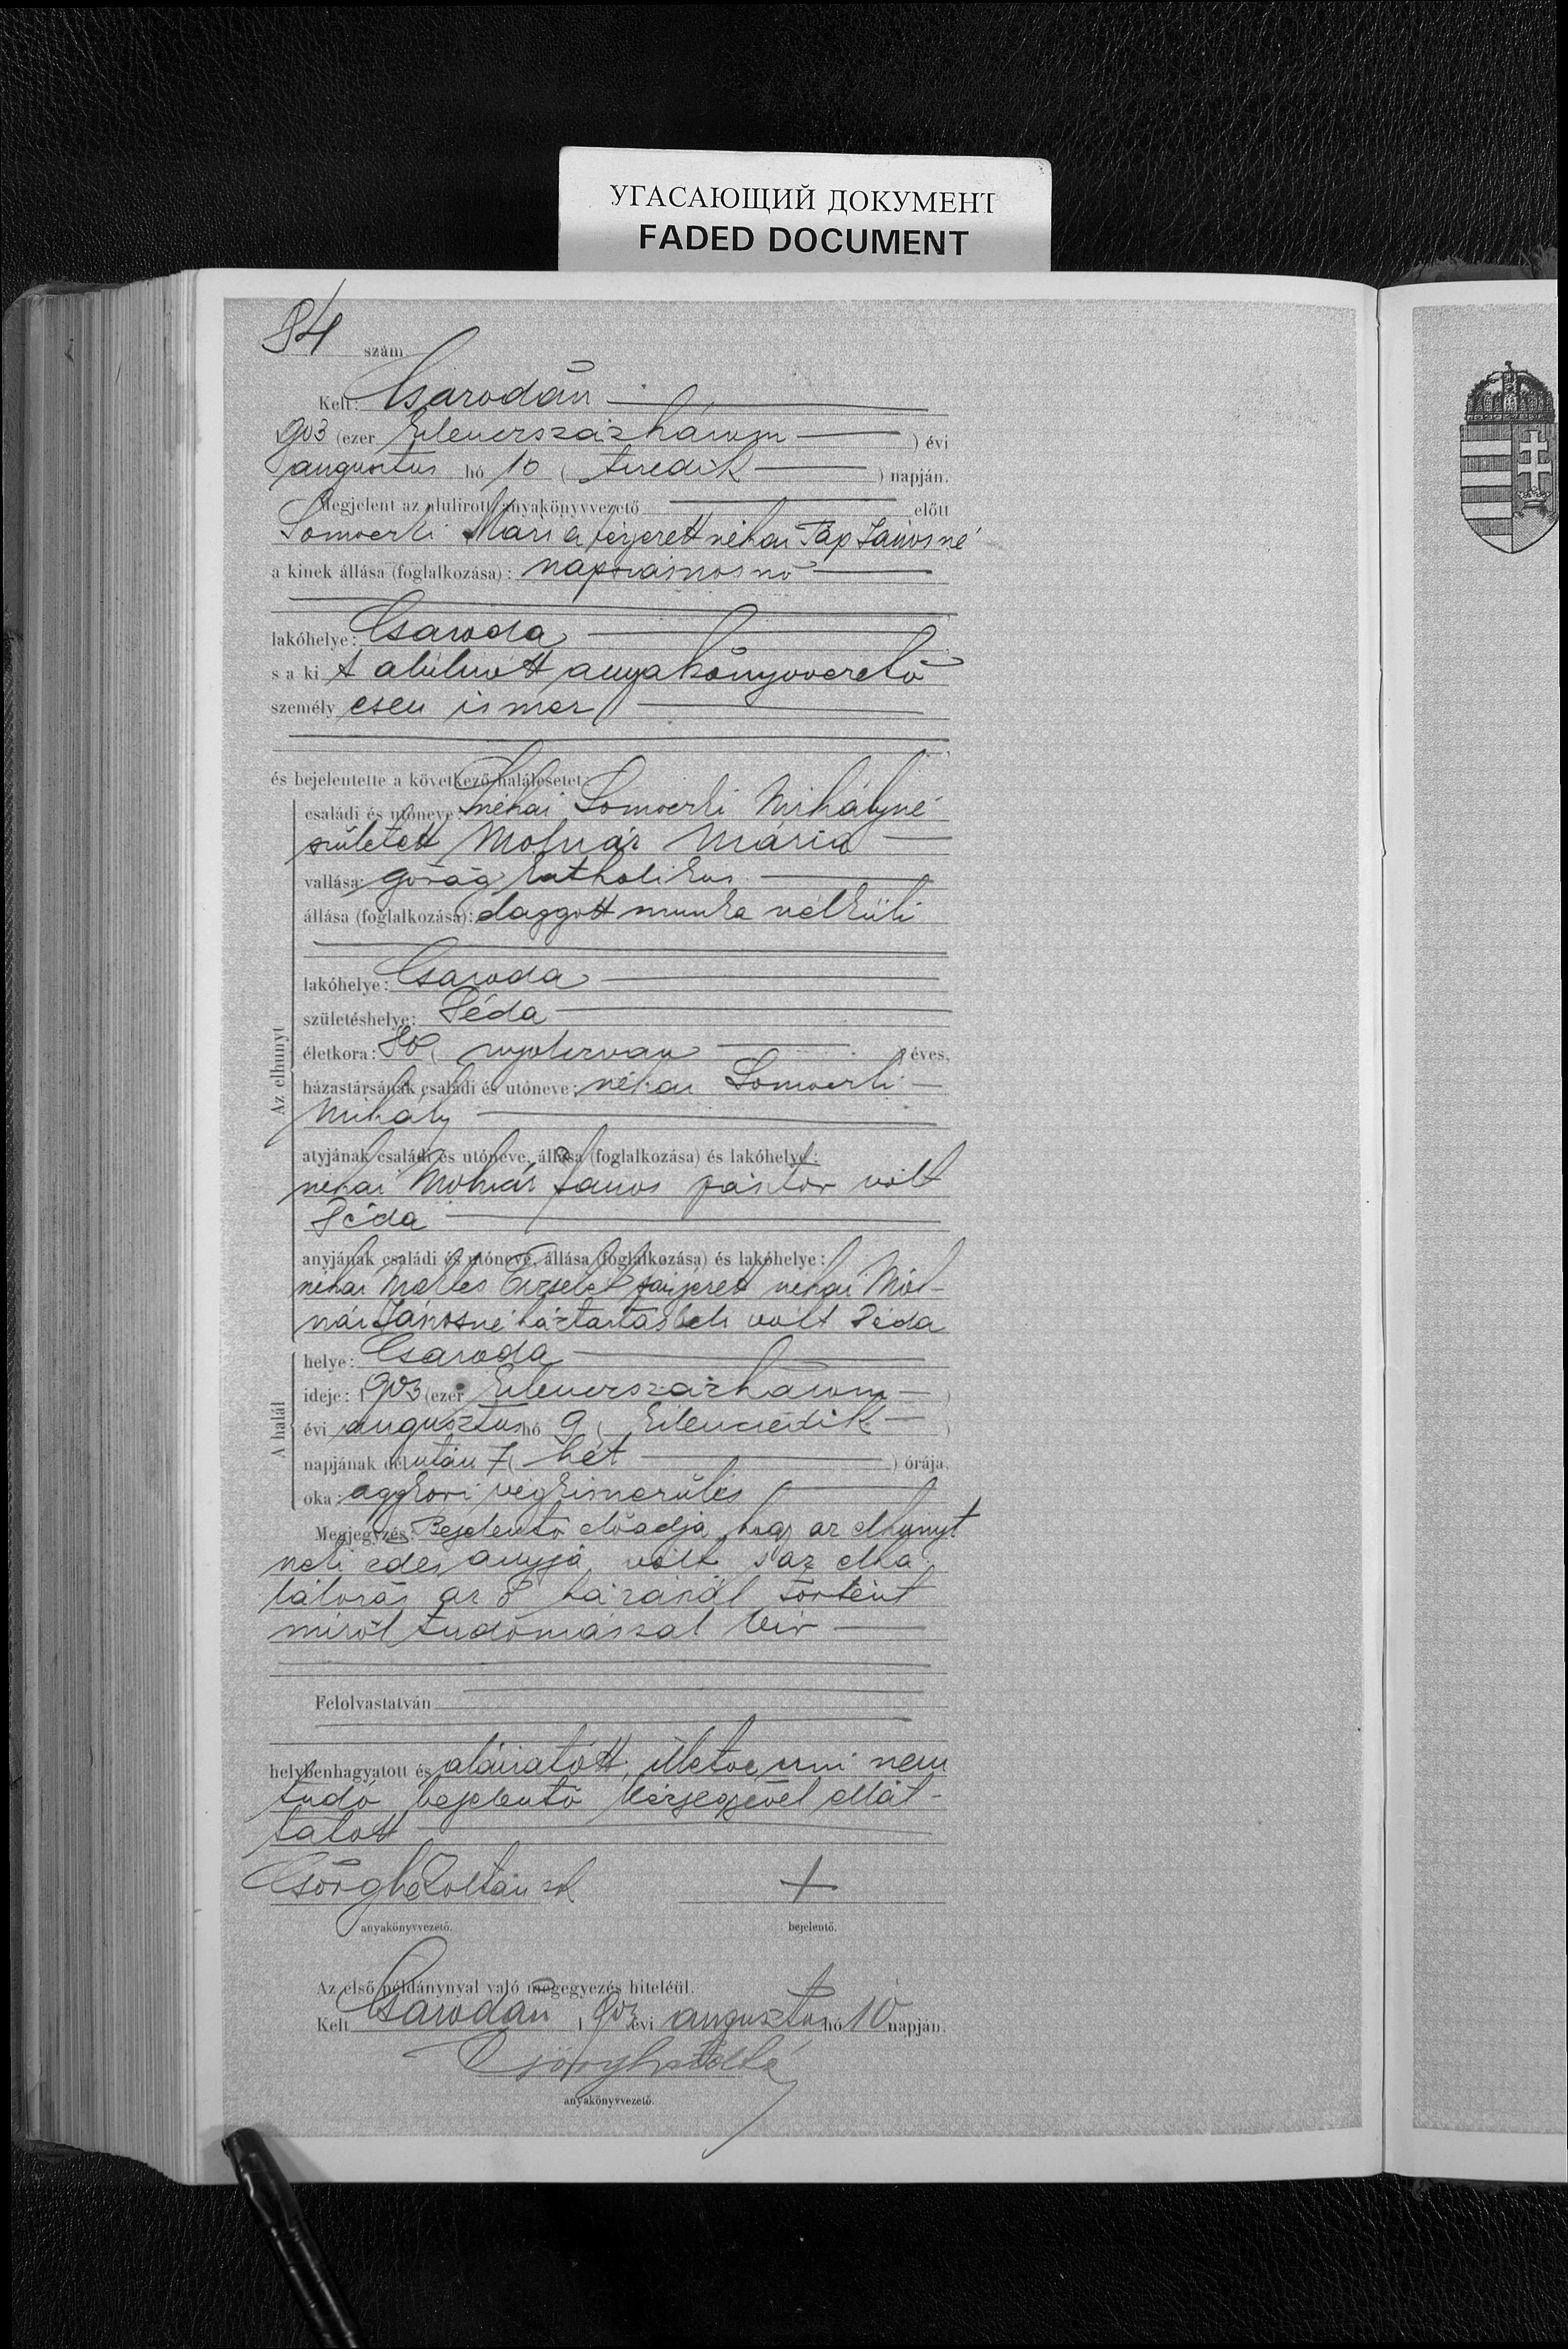 УГАСАЮЩИЙ ДОКУМЕНТ
FADED DOCUMENT
84 szám
Kelt: Csarodán
1903 (ezer kilenczszázhárom) évi
augusztus hó 10 ( tizedik ) napján.
Megjelent az alulirott anyakönyvvezető előtt
Mária férjezett néhai Páp Jánosné
a kinek állása (foglalkozása): napszámosnő
lakóhelye: Csaroda
s a kit alulirott anyakönyvvezető
személyesen ismer
és bejelentette a következő halálesetet:
Az elhunyt
családi és utóneve: néhai Mihályné
született Molnár Mária
vallása: görög katholikus
állása (foglalkozása): aggott munka nélküli
lakóhelye: Csaroda
születéshelye: Déda
életkora: 80 ( nyolczvan ) éves,
házastársának családi és utóneve: néhai
Mihály
atyjának családi és utóneve, állása (foglalkozása) és lakóhelye:
néhai Molnár János pásztor volt
Déda
anyjának családi és utóneve, állása (foglalkozása) és lakóhelye:
néhai Erzsébet férjezett néhai Mol-
nár Jánosné háztartásbeli volt Déda
A halál
helye: Csaroda
ideje: 1903 (ezer kilenczszázhárom )
évi augusztus hó 9 ( kilenczedik )
napjának délután 7 ( hét ) órája.
oka: aggkori végkimerülés
Megjegyzés: Bejelentő előadja, hogy az elhunyt
neki édes anyja volt s az elha-
lálozás az ő házánál történt
miről tudomással bir
Felolvastatván
helybenhagyatott és aláiratott, illetve irni nem
tudó bejelentő kézjegyével ellát-
tatott
Csörghe Zoltán sk +
anyakönyvvezető. bejelentő.
Az első példánynyal való megegyezés hiteléül.
Kelt Csarodán 1903 évi augusztus hó 10 napján.
Csörghe Zoltán
anyakönyvvezető.